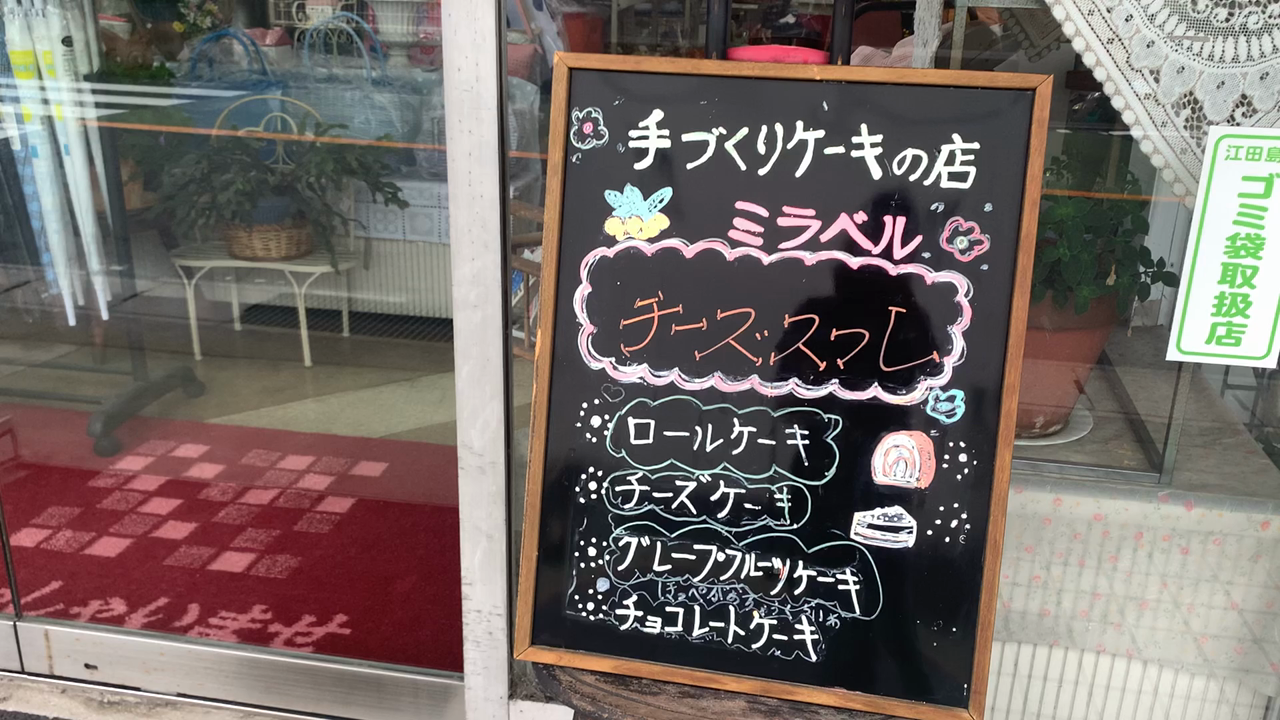 手づくりケーキの店
ミラベル
チーズスフレ
ロールケーキ
チーズケーキ
グレープフルーツケーキ
チョコレートケーキ
江田島
ゴミ袋取扱店
しゃいませ